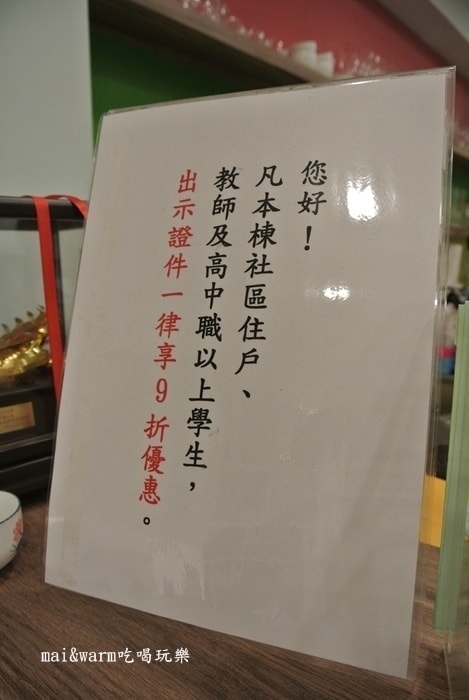 您好！
凡本棟社區住戶、
教師及高中職以上學生，
出示證件一律享9折優惠。
mai&warm吃喝玩樂